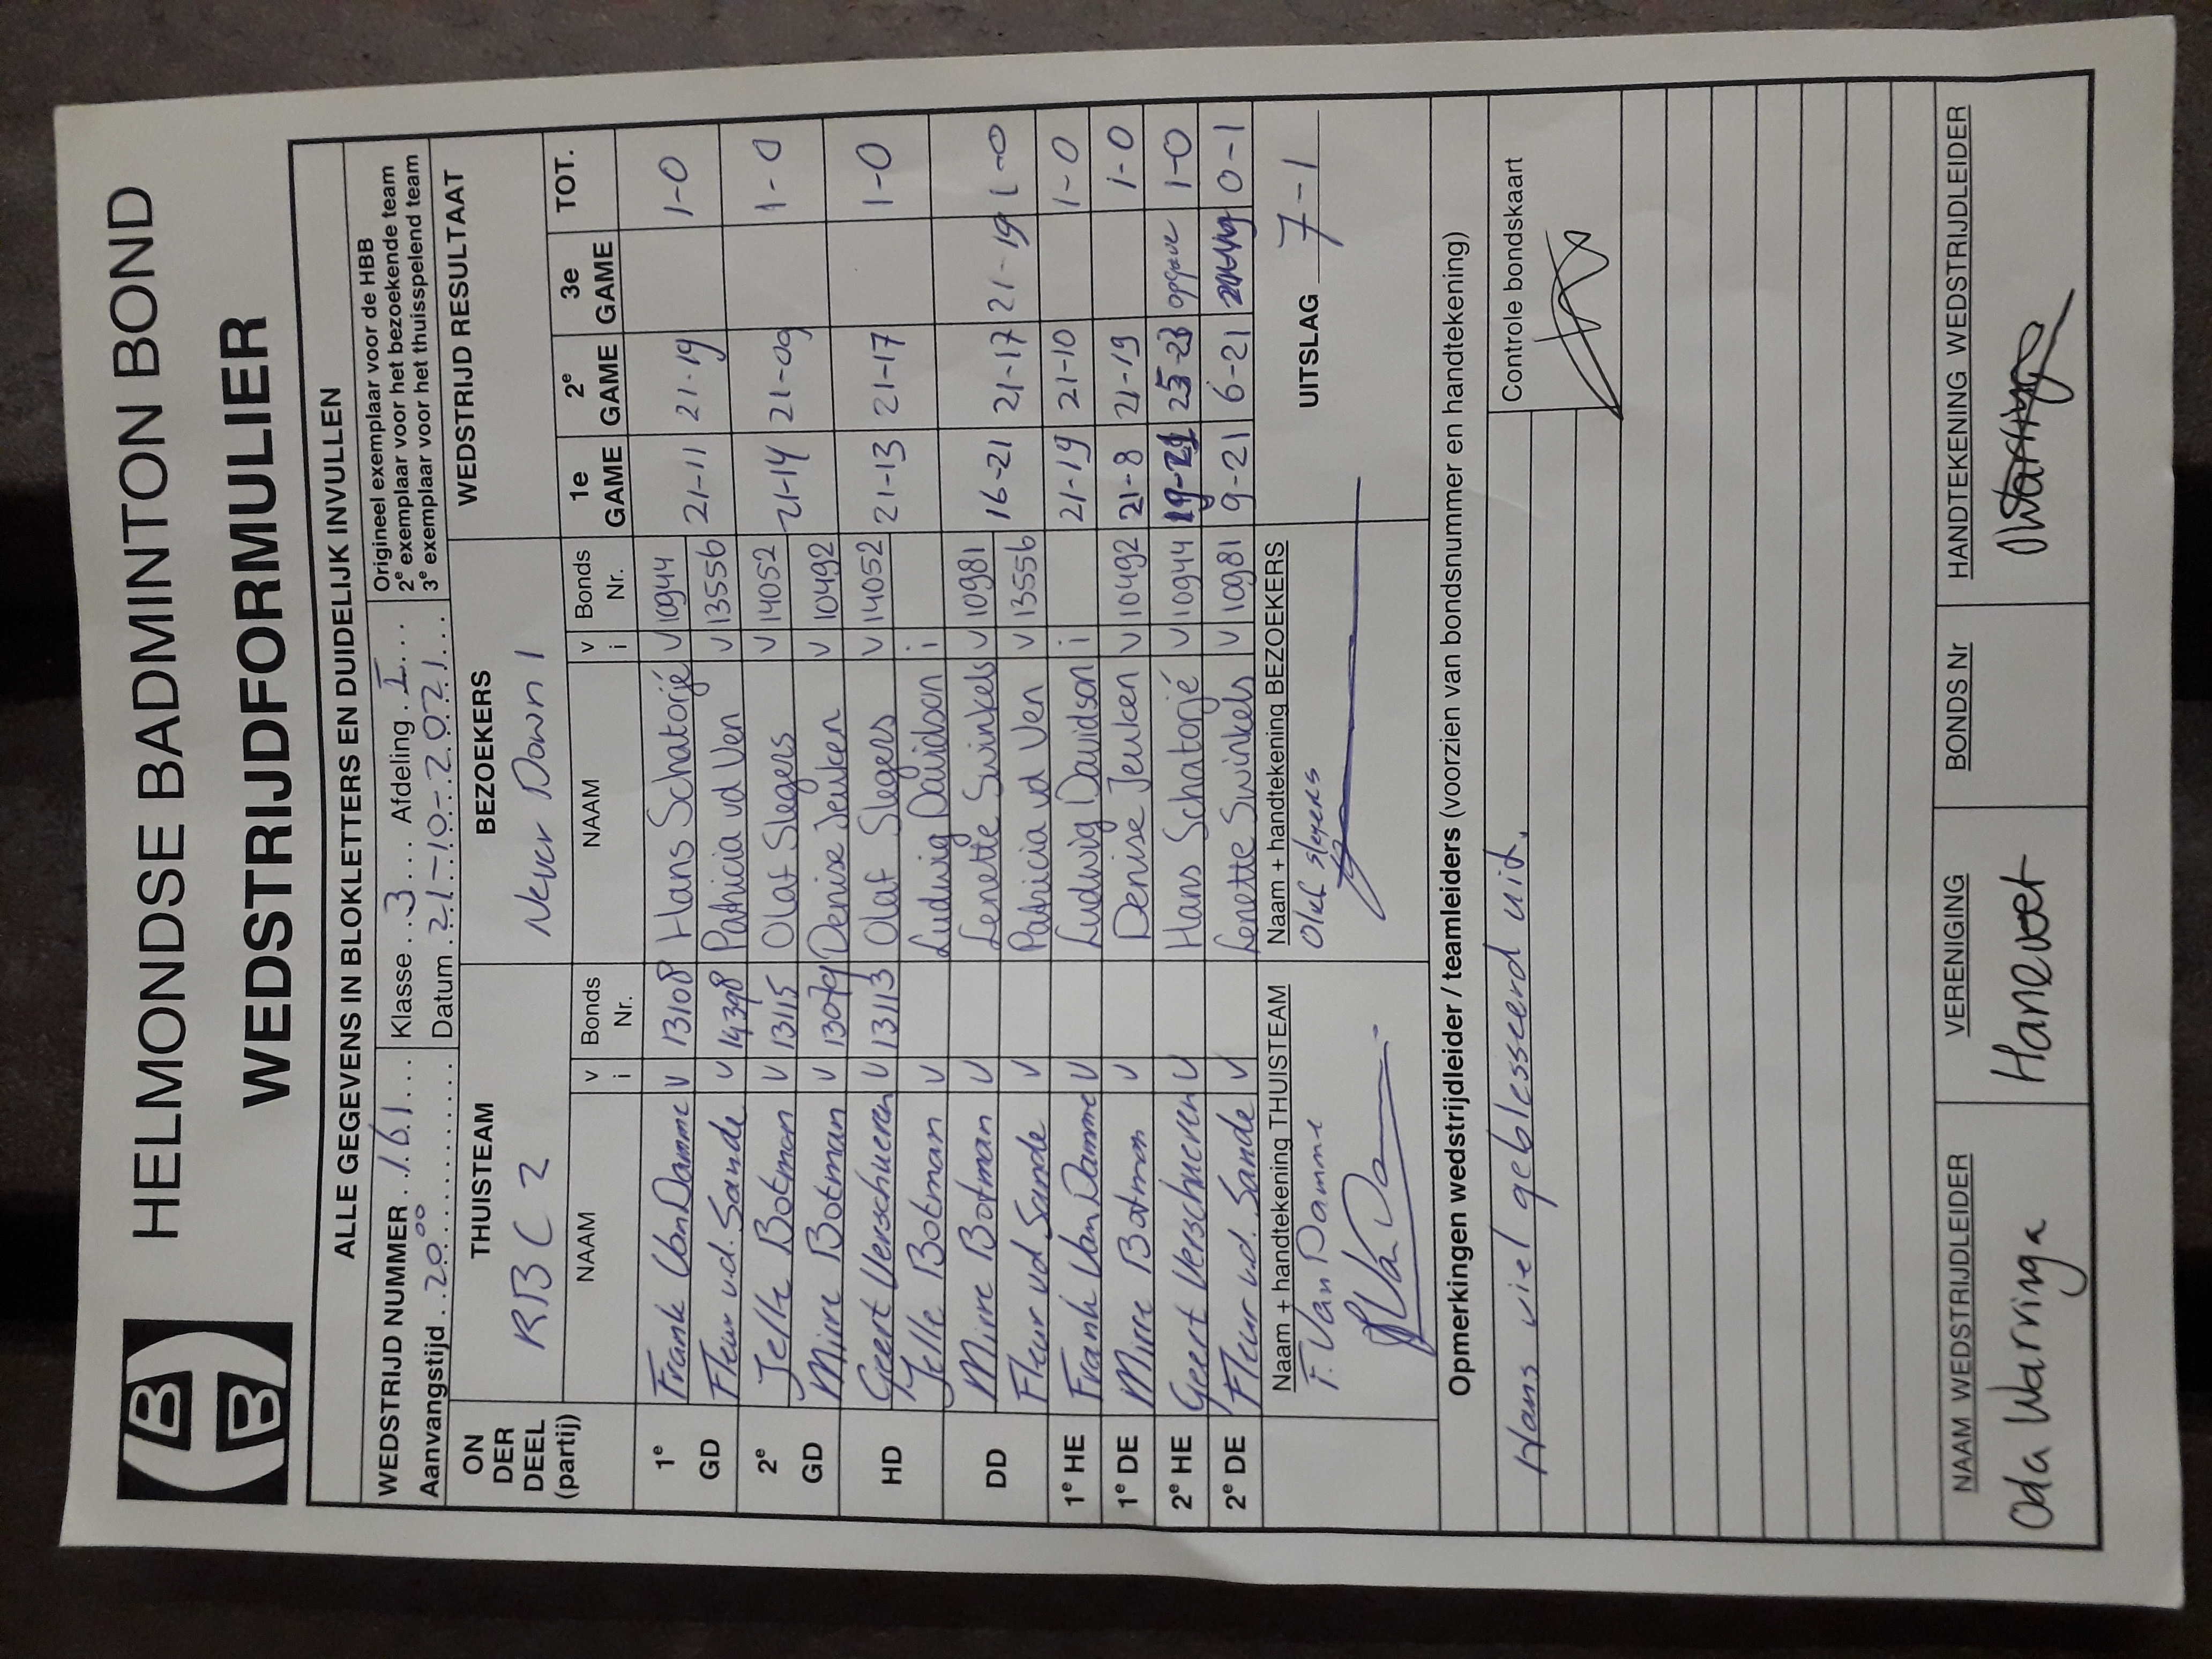 HELMONDSE BADMINTON BOND
WEDSTRIJDFORMULIER
ALLE GEGEVENS IN BLOKLETTERS EN DUIDELIJK INVULLEN
WEDSTRIJD NUMMER 161 Klasse 3 Afdeling I
Aanvangstijd 20.00 Datum 21-10-2021
Origineel exemplaar voor de HBB
2e exemplaar voor het bezoekende team
3e exemplaar voor het thuisspelend team
ON DER DEEL (partij) THUISTEAM BEZOEKERS WEDSTRIJD RESULTAAT
RBC 2 Never Down 1
NAAM v i Bonds Nr. NAAM v i Bonds Nr. 1e GAME 2e GAME 3e GAME TOT.
1e GD Frank Van Damme V 13108 Hans Schatorjé V 10944
Fleur v.d. Sande V 14398 Patricia vd Ven V 13556 21-11 21-19 1-0
2e GD Jelle Botman V 13115 Olaf Slegers V 14052
Mirre Botman V Denise Jeuken V 10492 21-14 21-09 1-0
HD Geert Verschueren V 13113 Olaf Slegers V 14052 21-13 21-17 1-0
Jelle Botman V Ludwig Davidson i
DD Mirre Botman V Lenette Swinkels V 10981
Fleur vd Sande V Patricia vd Ven V 13556 16-21 21-17 21-19 1-0
1e HE Frank Van Damme V Ludwig Davidson i 21-19 21-10 1-0
1e DE Mirre Botman V Denise Jeuken V 10492 21-8 21-19 1-0
2e HE Geert Verschueren V Hans Schatorjé V 10944 19-21 25-23 opgave 1-0
2e DE Fleur v.d. Sande V Lenette Swinkels V 10981 9-21 6-21 0-1
Naam + handtekening THUISTEAM Naam + handtekening BEZOEKERS UITSLAG 7-1
F. Van Damme Olaf Slegers
Opmerkingen wedstrijdleider / teamleiders (voorzien van bondsnummer en handtekening)
Controle bondskaart
Hans viel geblesseerd uit.
NAAM WEDSTRIJDLEIDER VERENIGING BONDS Nr HANDTEKENING WEDSTRIJDLEIDER
Oda Warringa Hanevoet